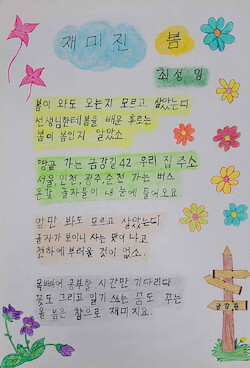 재미진 봄
최성임
봄이 와도 오는지 모르고 살았는디
선생님한테 봄을 배운 후로는
봄이 봄인지 알았소
땅끝 가는 금강길42 우리 집 주소
서울,인천,광주,순천 가는 버스
온갖 글자들이 내 눈에 들어오요.
앞만 봐도 모르고 살았는디
글자가 보이니 사는 맛이 나고
천하에 부러울 것이 없소.
목빼어 공부할 시간만 기다리다
꽃도 그리고 일기 쓰는 꿈도 꾸는
올 봄은 참으로 재미지요.